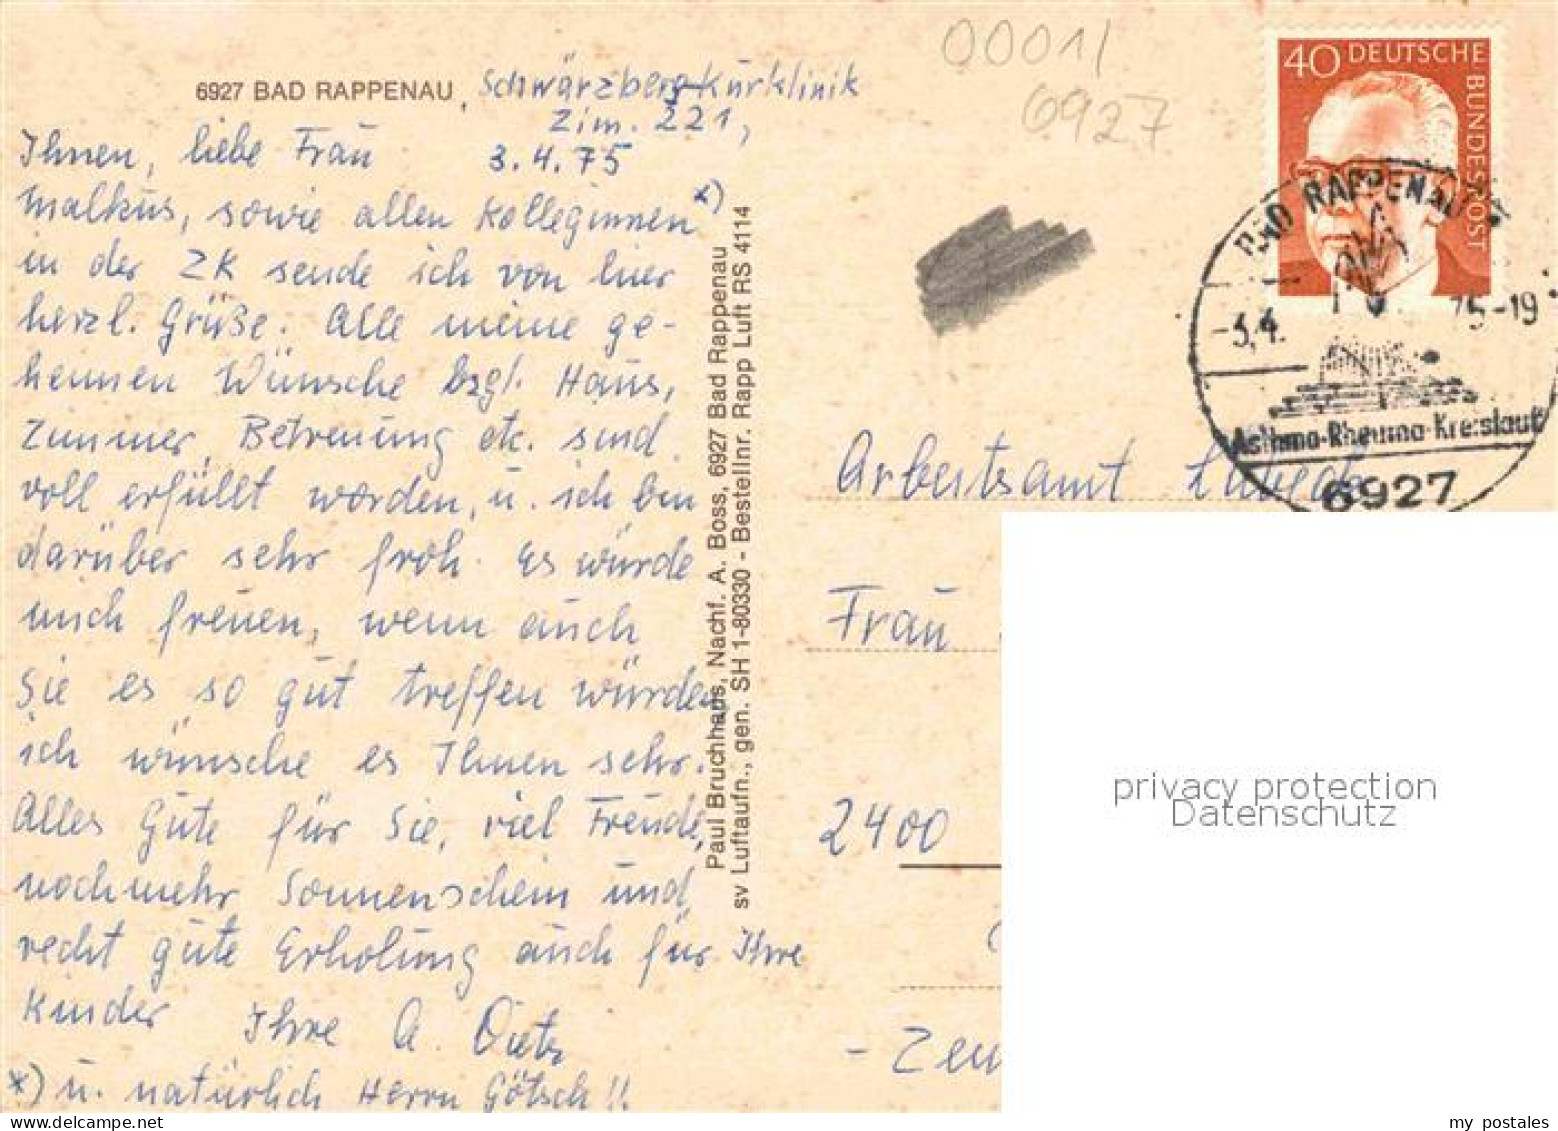 00011
6927
6927 BAD RAPPENAU, Schwärzberg-Kurklinik
Zim. 221,
3.4.75
Ihnen, liebe Frau
Malkus, sowie allen Kolleginnen *)
in der ZK sende ich von hier
herzl. Grüße. Alle meine ge-
heimen Wünsche bzgl. Haus,
Zimmer, Betreuung etc. sind
voll erfüllt worden, u. ich bin
darüber sehr froh. Es würde
mich freuen, wenn auch
Sie es so gut treffen würden,
ich wünsche es Ihnen sehr.
Alles Gute für Sie, viel Freude,
noch mehr Sonnenschein und
recht gute Erholung auch für Ihre
Kinder Ihre A. Dietz
*) u. natürlich Herrn Götsch!!
Paul Bruchhaus, Nachf. A. Boss, 6927 Bad Rappenau
sv Luftaufn., gen. SH 1-80330 - Bestellnr. Rapp Luft RS 4114
40 DEUTSCHE BUNDESPOST
BAD RAPPENAU
-3.4. 75-19
Asthma-Rheuma-Kreislauf
6927
Arbeitsamt Lübeck
Frau
2400
- Zen
privacy protection
Datenschutz
my postales